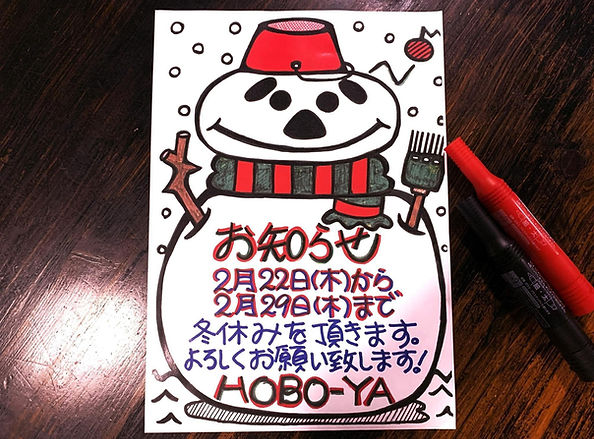 お知らせ
2月22日(木)から
2月29日(木)まで
冬休みを頂きます。
よろしくお願い致します!
HOBO-YA